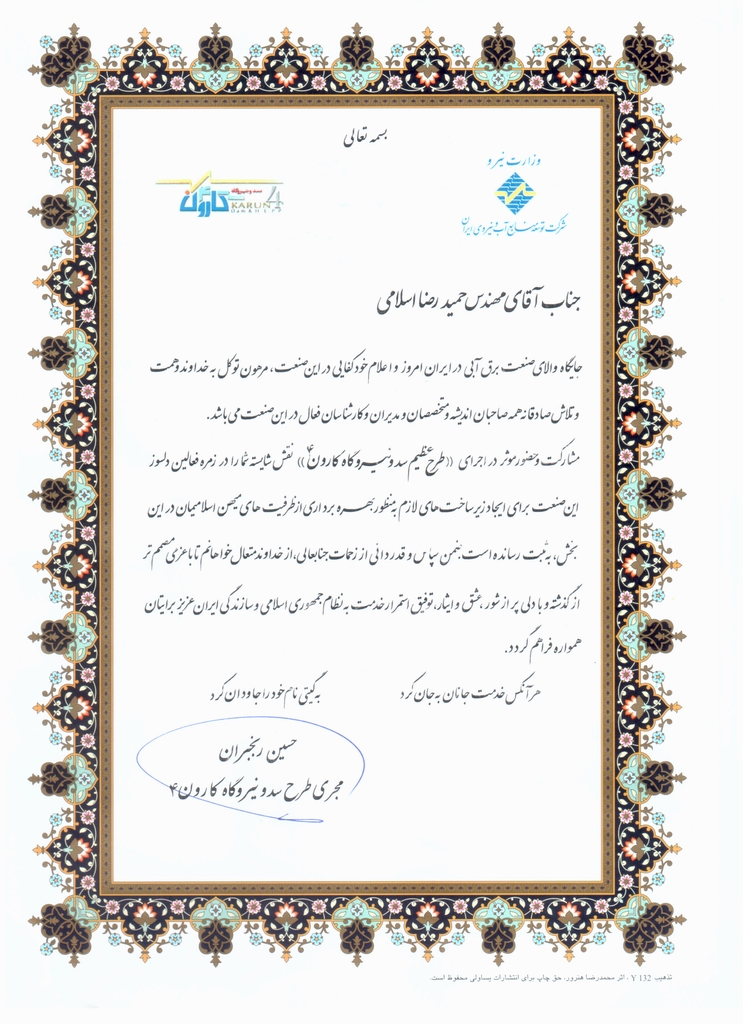 بسمه تعالی
وزارت نیرو
شرکت توسعه منابع آب و نیروی ایران
سد و نیروگاه
کارون ۴
KARUN 4
DAM & H.E.P.P
جناب آقای مهندس حمید رضا اسلامی
جایگاه والای صنعت برق آبی در ایران امروز و اعلام خودکفایی در این صنعت، مرهون توکل به خداوند و همت
و تلاش صادقانه همه صاحبان اندیشه و متخصصان و مدیران و کارشناسان فعال در این صنعت می باشد.
مشارکت و حضور موثر در اجرای «طرح عظیم سد و نیروگاه کارون ۴» نقش شایسته شما را در زمره فعالین دلسوز
این صنعت برای ایجاد زیرساخت های لازم بمنظور بهره برداری از ظرفیت های میهن اسلامیمان در این
بخش، به ثبت رسانده است. ضمن سپاس و قدردانی از زحمات جنابعالی، از خداوند متعال خواهانم تا با عزمی مصمم تر
از گذشته و با دلی پر از شور، عشق و ایثار، توفیق استمرار خدمت به نظام جمهوری اسلامی و سازندگی ایران عزیز برایتان
همواره فراهم گردد.
هر آنکس خدمت جانان به جان کرد به گیتی نام خود را جاودان کرد
حسین رنجبران
مجری طرح سد و نیروگاه کارون ۴
تذهیب Y 132 ، اثر محمدرضا هنرور. حق چاپ برای انتشارات یساولی محفوظ است.